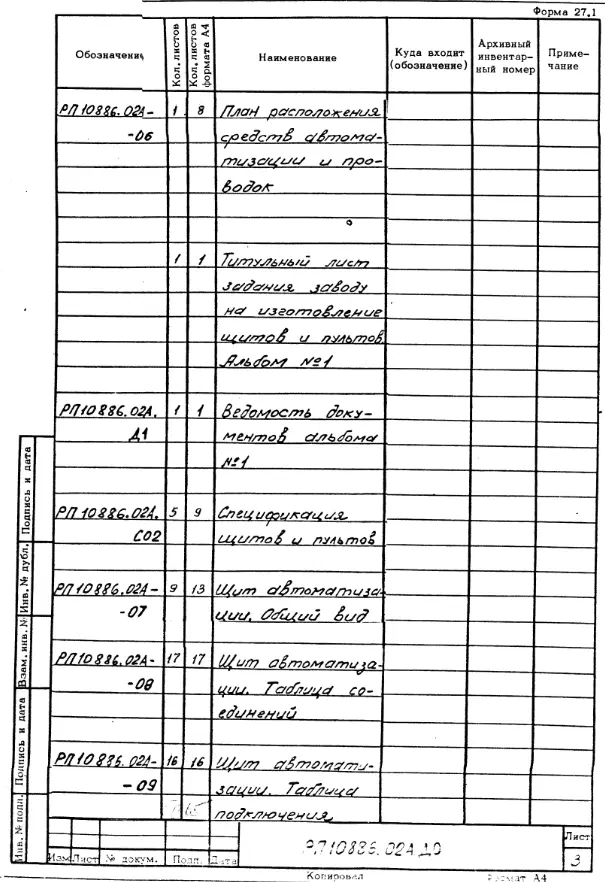 Форма 27.1
Обозначение Кол. листов Кол. листов формата А4 Наименование Куда входит (обозначение) Архивный инвентарный номер Примечание
РП10886.02А- 1 8 План расположения
-06 средств автома-
тизации и про-
водок
1 1 Титульный лист
задания заводу
на изготовление
щитов и пультов
Альбом №1
РП10886.02А. 1 1 Ведомость доку-
Д1 ментов альбома
№1
РП10886.02А. 5 9 Спецификация
С02 щитов и пультов
РП10886.02А- 9 13 Щит автоматиза-
-07 ции. Общий вид
РП10886.02А- 17 17 Щит автоматиза-
-08 ции. Таблица со-
единений
РП10886.02А- 16 16 Щит автомати-
-09 зации. Таблица
подключения
Подпись и дата
Инв. № дубл.
Взам. инв. №
Подпись и дата
Инв. № подл.
РП10886.02А Д0
Лист
3
Изм Лист № докум. Подп. Дата
Копировал Формат А4